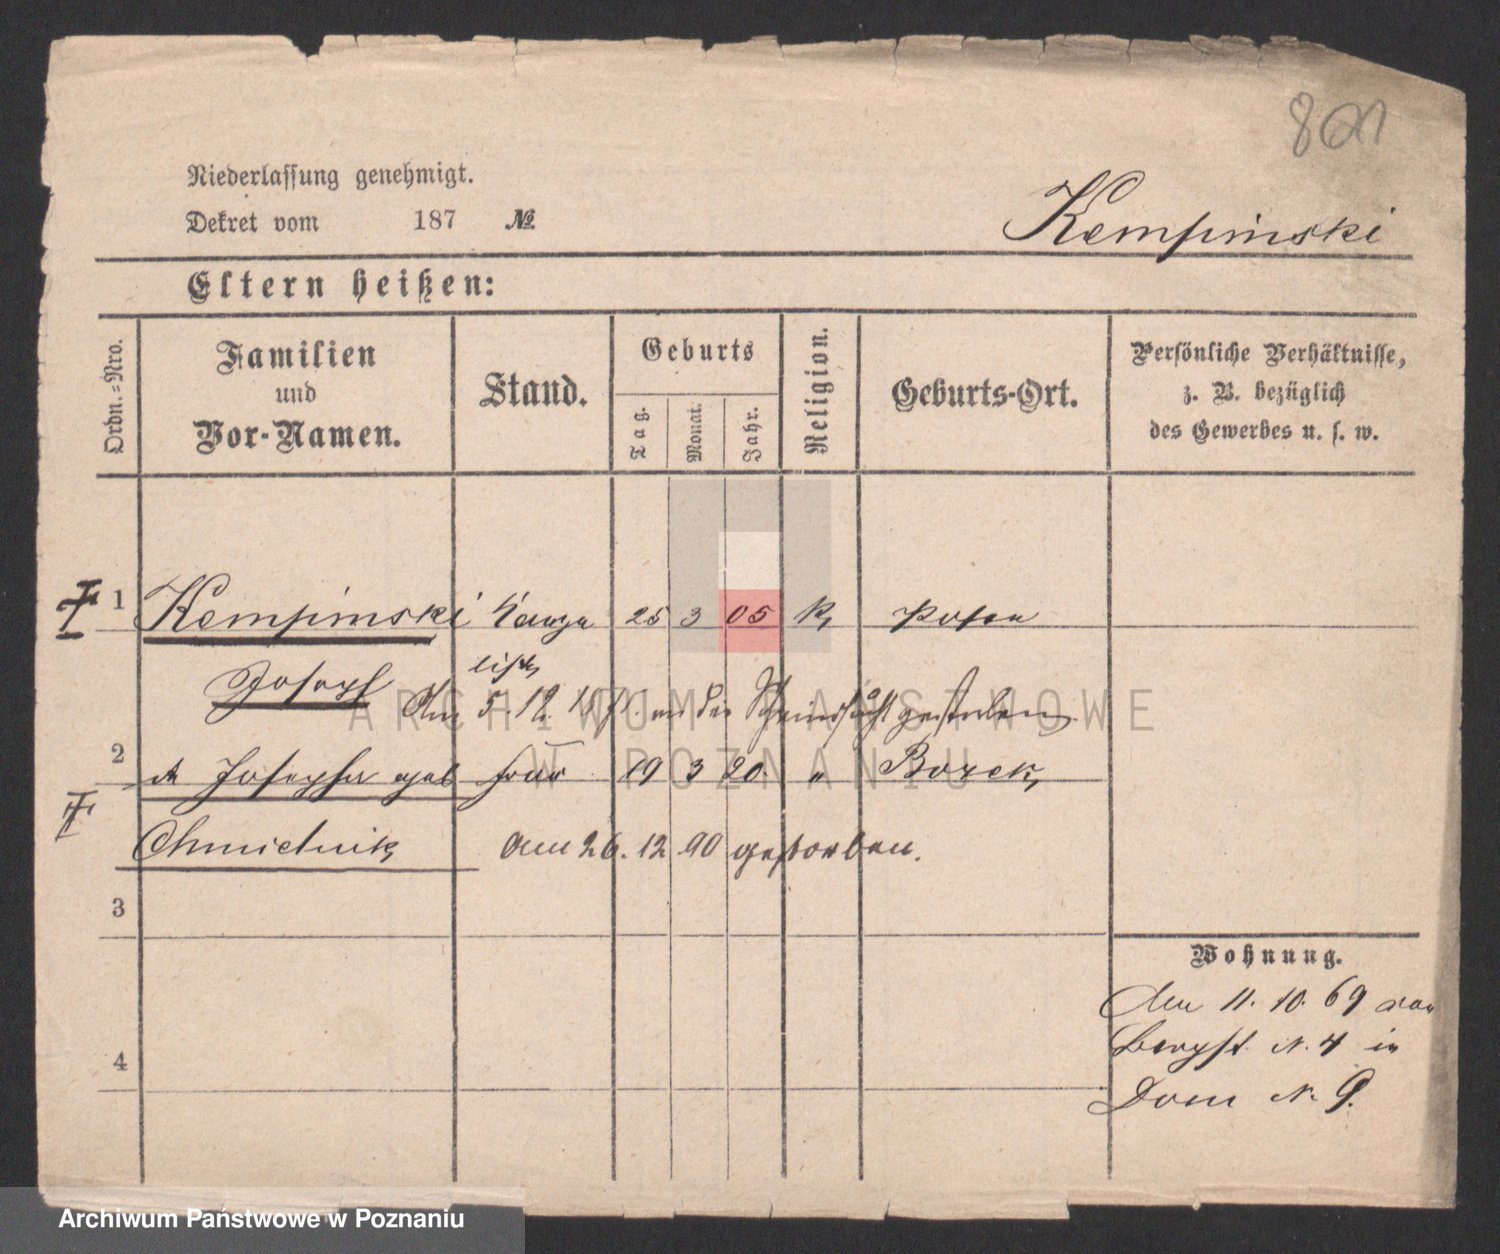 801
Niederlassung genehmigt.
Dekret vom 187 №
Kempinski
Eltern heißen:
Ordn.-Nro.
Familien
und
Vor-Namen.
Stand.
Geburts
Tag.
Monat.
Jahr.
Religion.
Geburts-Ort.
Persönliche Verhältnisse,
z. B. bezüglich
des Gewerbes u. s. w.
1 Kempinski Kanza 25 3 05 K, Posen
Joseph listh
Am 5. 12. 1871 an der gestorben
2 Josepha geb Frau 19 3 20. " Borek,
Chmielnik am 26. 12 90 gestorben.
3
4
Wohnung.
Am 11. 10. 69 von
Bergst. N. 4 in
Dom N. 9.
ARCHIWUM PAŃSTWOWE
W POZNANIU
Archiwum Państwowe w Poznaniu